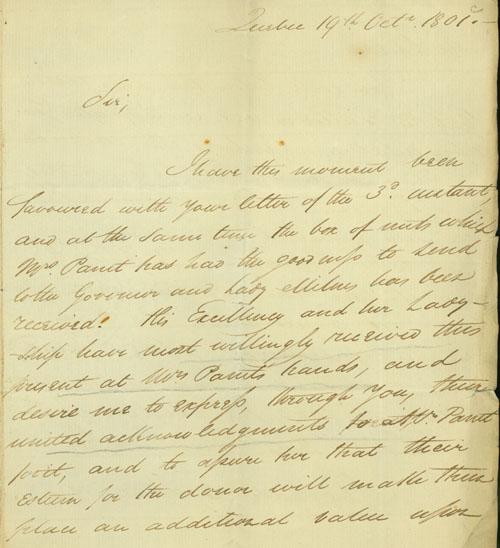 Quebec 19th Octr. 1801.
Sir,
I have this moment been
favoured with your letter of the 3d. instant,
and at the same time the box of nuts which
Mrs Panet has had the goodness to send
to the Governor and Lady Milnes has been
received. His Excellency and her Lady-
-ship have most willingly received this
present at Mrs Panet's hands, and
desire me to express, through You, their
united acknowledgments to Mrs. Panet
for it, and to assure her that their
esteem for the donor will make them
place an additional value upon